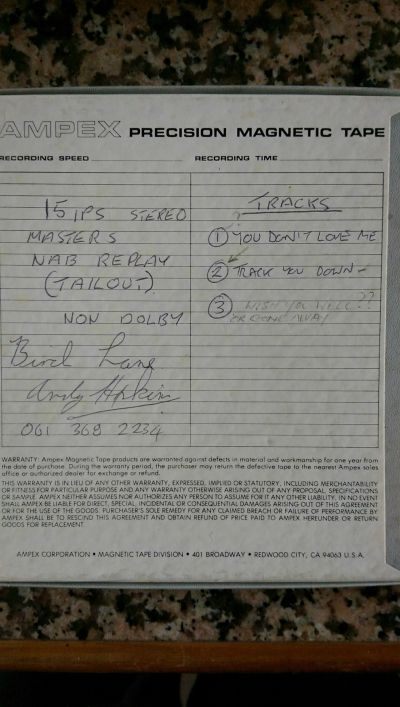 AMPEX PRECISION MAGNETIC TAPE
RECORDING SPEED
RECORDING TIME
15 IPS STEREO
MASTERS
NAB REPLAY
(TAILOUT)
NON DOLBY
Bird Lane
Andy Hopkins
061 368 2234
TRACKS
1 YOU DON'T LOVE ME
2 TRACK YOU DOWN -
3 WISH YOU WELL ??
OR GONE AWAY
WARRANTY: Ampex Magnetic Tape products are warranted against defects in material and workmanship for one year from
the date of purchase. During the warranty period, the purchaser may return the defective tape to the nearest Ampex sales
office or authorized dealer for exchange or refund.
THIS WARRANTY IS IN LIEU OF ANY OTHER WARRANTY, EXPRESSED, IMPLIED OR STATUTORY, INCLUDING MERCHANTABILITY
OR FITNESS FOR PARTICULAR PURPOSE AND ANY WARRANTY OTHERWISE ARISING OUT OF ANY PROPOSAL, SPECIFICATIONS
OR SAMPLE. AMPEX NEITHER ASSUMES NOR AUTHORIZES ANY PERSON TO ASSUME FOR IT ANY OTHER LIABILITY. IN NO EVENT
SHALL AMPEX BE LIABLE FOR DIRECT, SPECIAL, INCIDENTAL OR CONSEQUENTIAL DAMAGES ARISING OUT OF THIS AGREEMENT
OR FOR THE USE OF THE GOODS. PURCHASER'S SOLE REMEDY FOR ANY CLAIMED BREACH OR FAILURE OF PERFORMANCE BY
AMPEX SHALL BE TO RESCIND THIS AGREEMENT AND OBTAIN REFUND OF PRICE PAID TO AMPEX HEREUNDER OR RETURN
GOODS FOR REPLACEMENT.
AMPEX CORPORATION • MAGNETIC TAPE DIVISION • 401 BROADWAY • REDWOOD CITY, CA 94063 U.S.A.